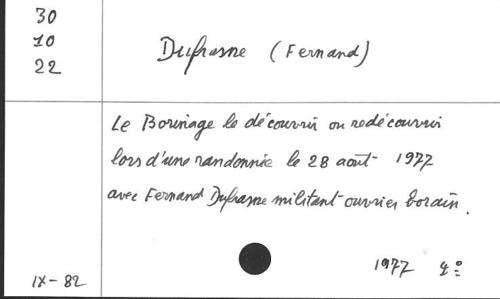 30
10
22
Dufrasne (Fernand)
Le Borinage le découvrir ou redécouvrir
lors d'une randonnée le 28 août 1977
avec Fernand Dufrasne militant ouvrier borain.
1977 4°
IX-82